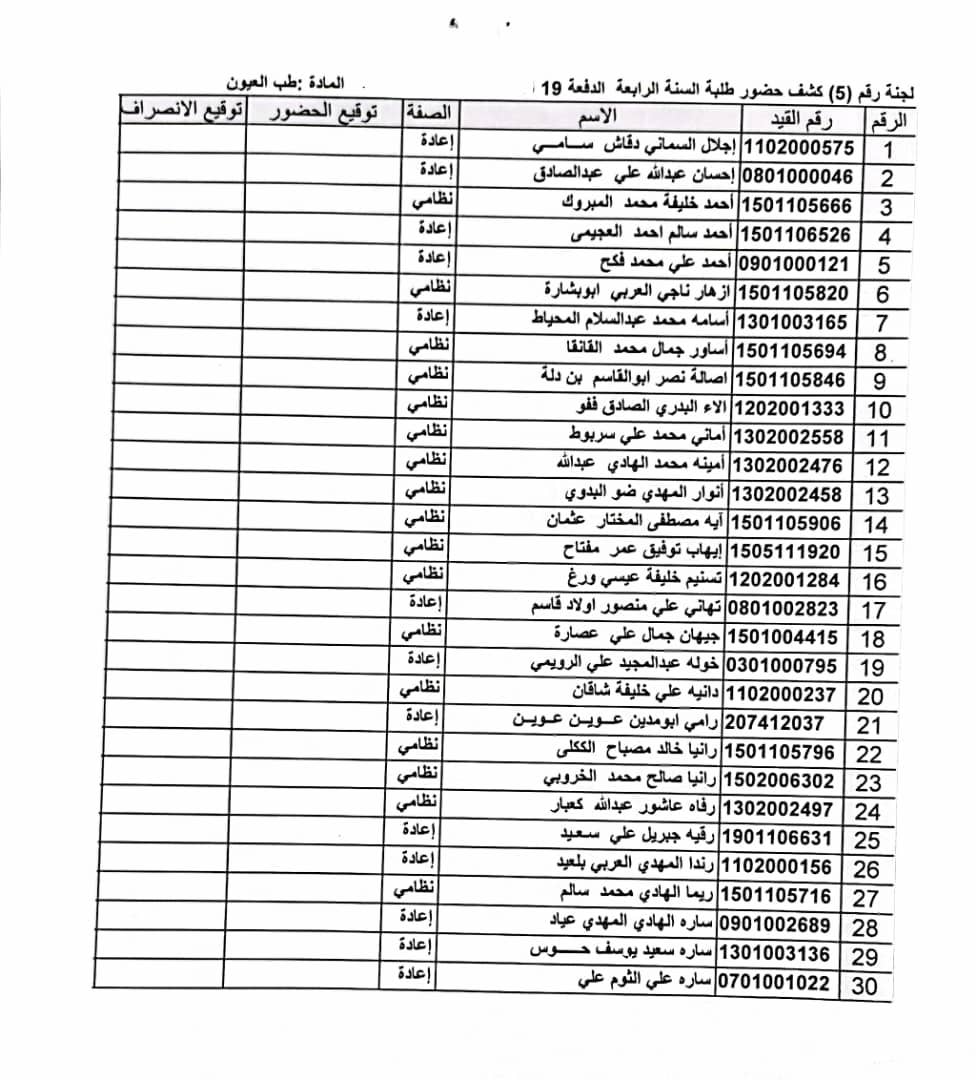 لجنة رقم (5) كشف حضور طلبة السنة الرابعة الدفعة 19 المادة :طب العيون
الرقم رقم القيد الاسم الصفة توقيع الحضور توقيع الانصراف
1 1102000575 إجلال السماني دقاش سامي إعادة
2 0801000046 إحسان عبدالله علي عبدالصادق إعادة
3 1501105666 أحمد خليفة محمد المبروك نظامي
4 1501106526 أحمد سالم احمد العجيمى إعادة
5 0901000121 أحمد علي محمد فكح إعادة
6 1501105820 ازهار ناجي العربي ابوبشارة نظامي
7 1301003165 أسامه محمد عبدالسلام المحياط إعادة
8 1501105694 أساور جمال محمد القانقا نظامي
9 1501105846 اصالة نصر ابوالقاسم بن دلة نظامي
10 1202001333 الاء البدري الصادق ففو نظامي
11 1302002558 أماني محمد علي سربوط نظامي
12 1302002476 أمينه محمد الهادي عبدالله نظامي
13 1302002458 أنوار المهدي ضو البدوي نظامي
14 1501105906 آيه مصطفى المختار عثمان نظامي
15 1505111920 إيهاب توفيق عمر مفتاح نظامي
16 1202001284 تسنيم خليفة عيسي ورغ نظامي
17 0801002823 تهاني علي منصور اولاد قاسم إعادة
18 1501004415 جيهان جمال علي عصارة نظامي
19 0301000795 خوله عبدالمجيد علي الرويمي إعادة
20 1102000237 دانيه علي خليفة شاقان نظامي
21 207412037 رامي ابومدين عوين عوين إعادة
22 1501105796 رانيا خالد مصباح الككلى نظامي
23 1502006302 رانيا صالح محمد الخروبي نظامي
24 1302002497 رفاه عاشور عبدالله كعبار نظامي
25 1901106631 رقيه جبريل علي سعيد إعادة
26 1102000156 رندا المهدي العربي بلعيد إعادة
27 1501105716 ريما الهادي محمد سالم نظامي
28 0901002689 ساره الهادي المهدي عياد إعادة
29 1301003136 ساره سعيد يوسف حوس إعادة
30 0701001022 ساره علي الثوم علي إعادة